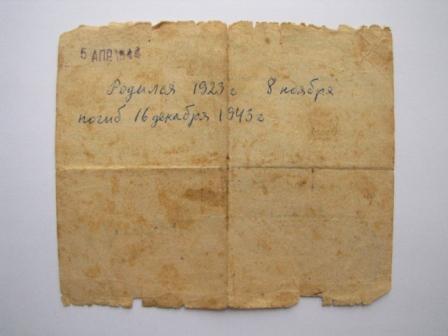 5 АПР 1944
Родился 1923 г 8 ноября
погиб 16 декабря 1943 г